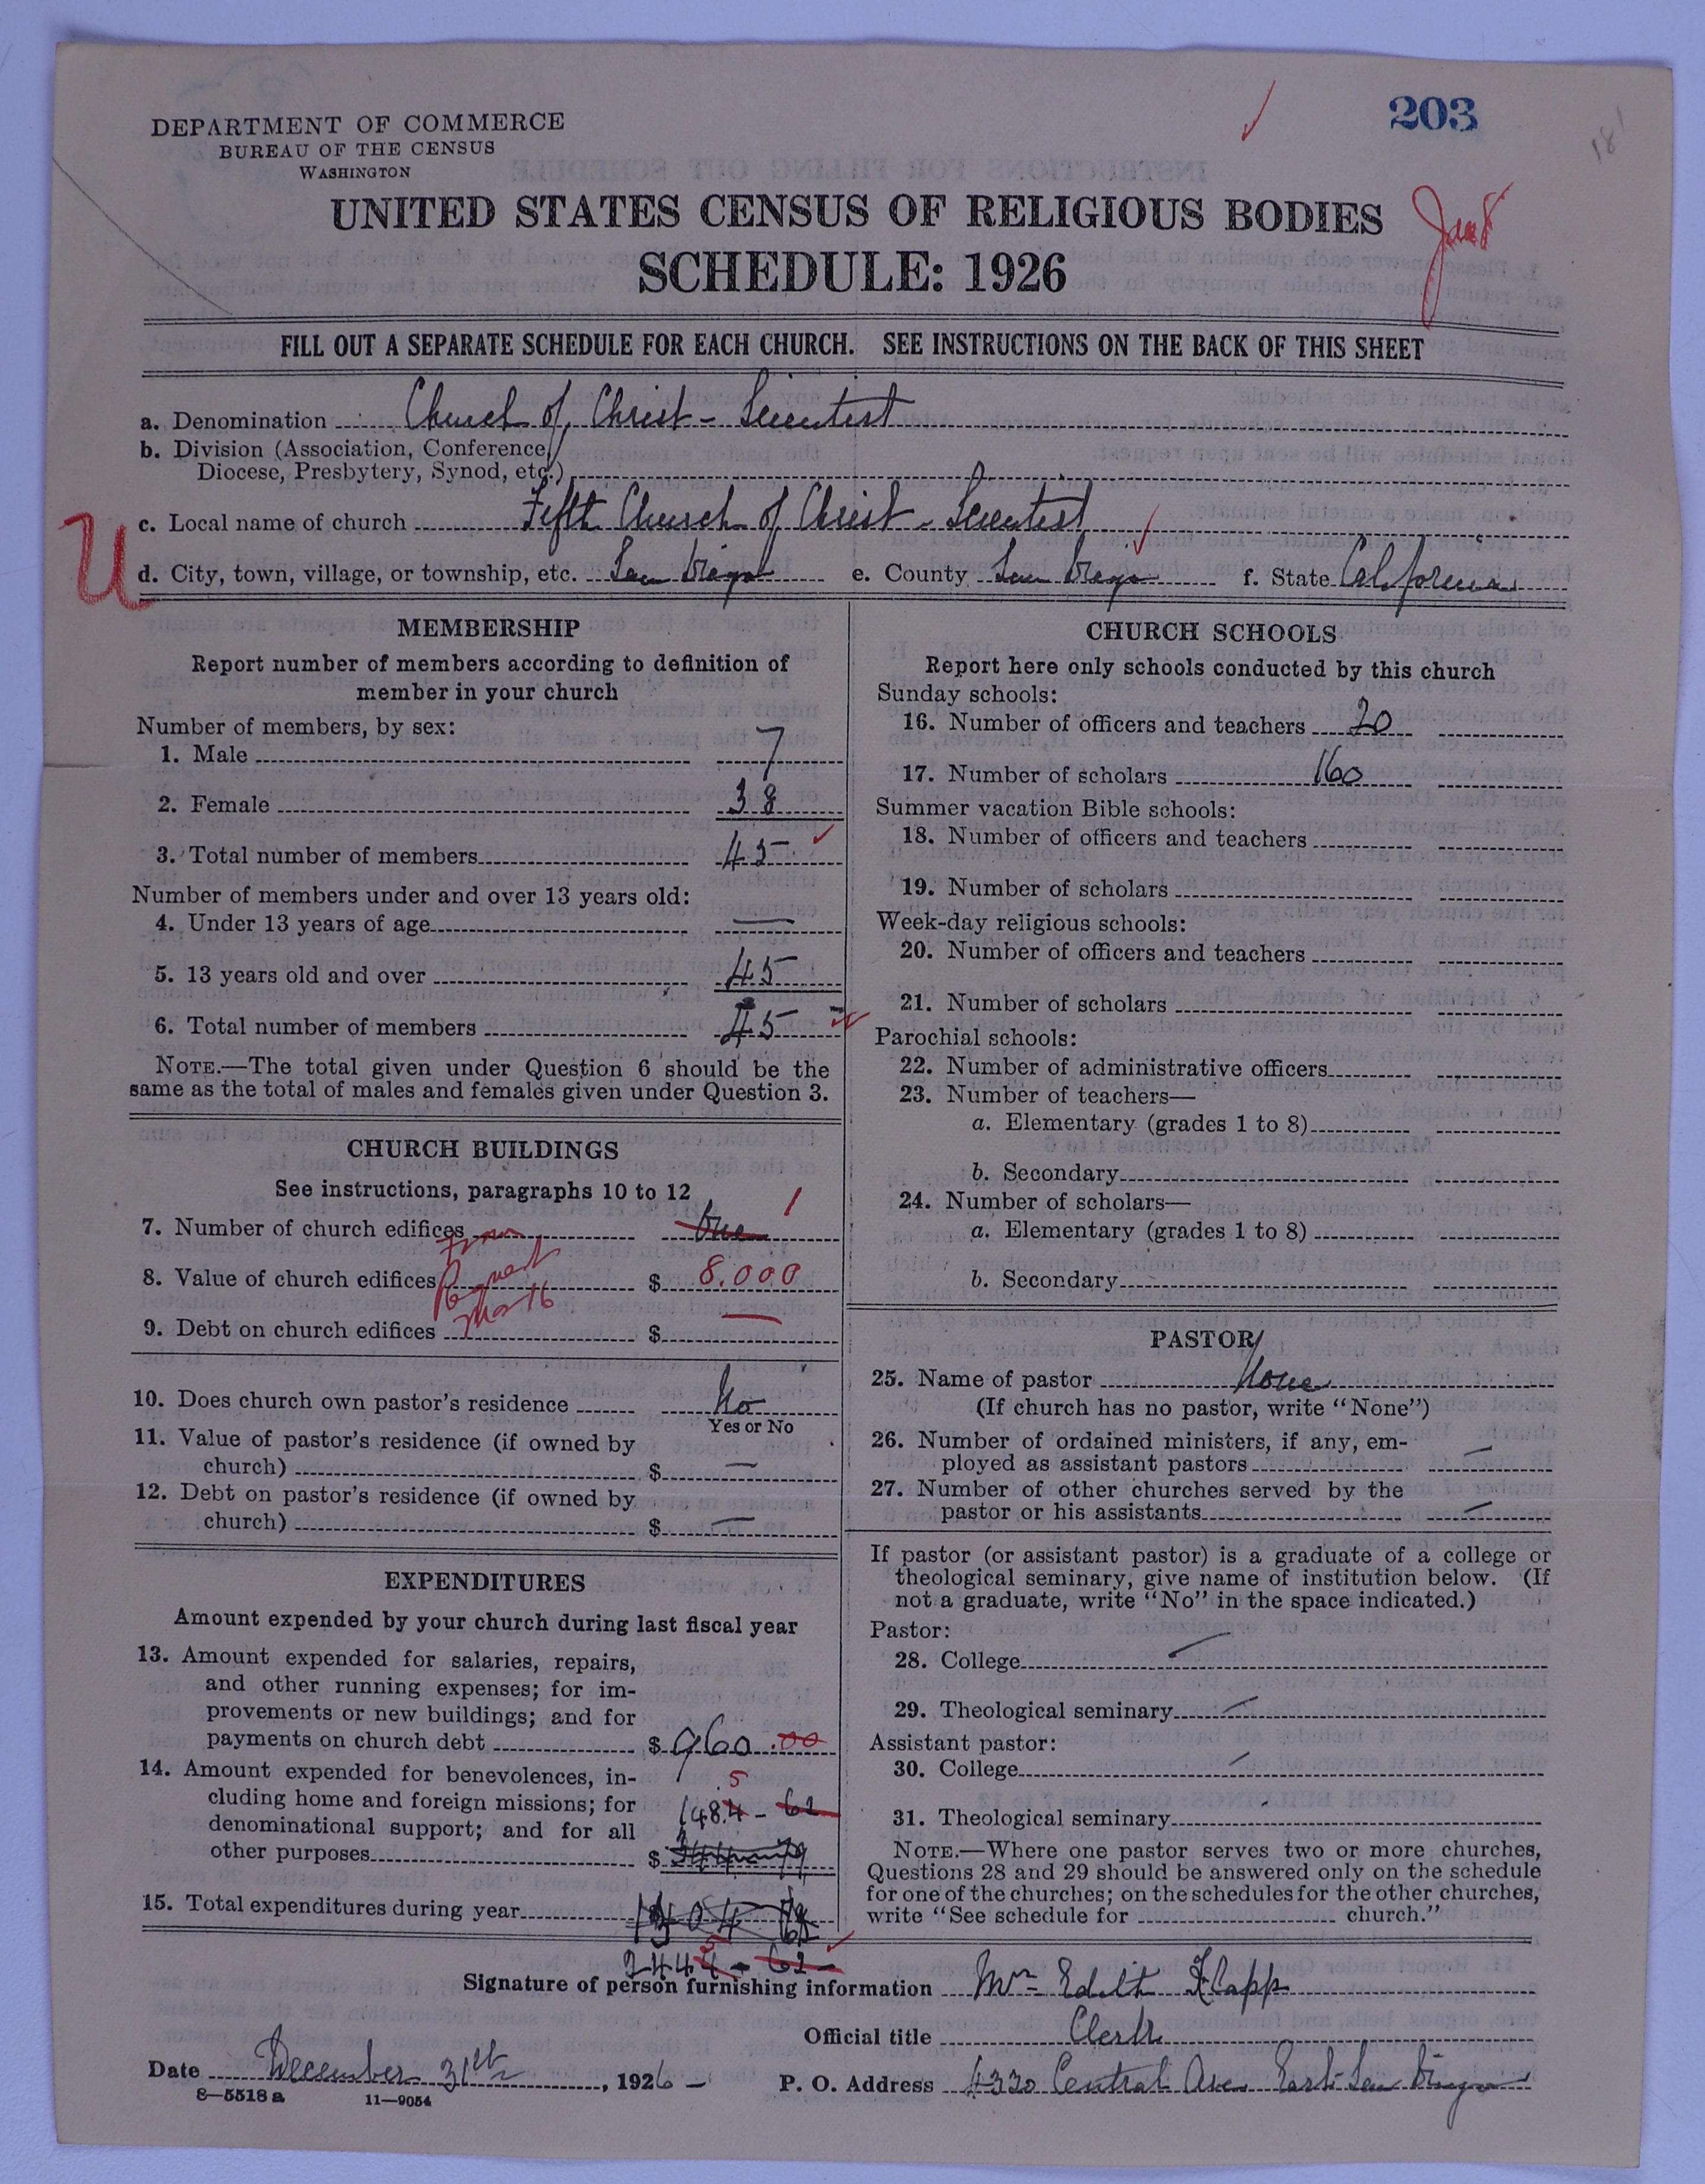 203
181
DEPARTMENT OF COMMERCE
BUREAU OF THE CENSUS
WASHINGTON
UNITED STATES CENSUS OF RELIGIOUS BODIES
SCHEDULE: 1926
FILL OUT A SEPARATE SCHEDULE FOR EACH CHURCH. SEE INSTRUCTIONS ON THE BACK OF THIS SHEET
a. Denomination Church of Christ - Scientist
b. Division (Association, Conference,
Diocese, Presbytery, Synod, etc.)
c. Local name of church Fifth Church of Christ - Scientist
U
d. City, town, village, or township, etc. San Diego e. County San Diego f. State California
MEMBERSHIP
Report number of members according to definition of
member in your church
Number of members, by sex:
1. Male 7
2. Female 38
3. Total number of members 45
Number of members under and over 13 years old:
4. Under 13 years of age —
5. 13 years old and over 45
6. Total number of members 45
NOTE.—The total given under Question 6 should be the
same as the total of males and females given under Question 3.
CHURCH BUILDINGS
See instructions, paragraphs 10 to 12
7. Number of church edifices One 1
8. Value of church edifices $ 8.000
9. Debt on church edifices $ —
10. Does church own pastor's residence No
Yes or No
11. Value of pastor's residence (if owned by
church) $ —
12. Debt on pastor's residence (if owned by
church) $ —
EXPENDITURES
Amount expended by your church during last fiscal year
13. Amount expended for salaries, repairs,
and other running expenses; for im-
provements or new buildings; and for
payments on church debt $ 960.00
14. Amount expended for benevolences, in-
cluding home and foreign missions; for
denominational support; and for all
other purposes $
5
1484 - 62
15. Total expenditures during year
2444 - 62 -
CHURCH SCHOOLS
Report here only schools conducted by this church
Sunday schools:
16. Number of officers and teachers 20
17. Number of scholars 160
Summer vacation Bible schools:
18. Number of officers and teachers
19. Number of scholars
Week-day religious schools:
20. Number of officers and teachers
21. Number of scholars
Parochial schools:
22. Number of administrative officers
23. Number of teachers—
a. Elementary (grades 1 to 8)
b. Secondary
24. Number of scholars—
a. Elementary (grades 1 to 8)
b. Secondary
PASTOR
25. Name of pastor None
(If church has no pastor, write "None")
26. Number of ordained ministers, if any, em-
ployed as assistant pastors —
27. Number of other churches served by the
pastor or his assistants —
If pastor (or assistant pastor) is a graduate of a college or
theological seminary, give name of institution below. (If
not a graduate, write "No" in the space indicated.)
Pastor:
28. College —
29. Theological seminary —
Assistant pastor:
30. College —
31. Theological seminary
NOTE.—Where one pastor serves two or more churches,
Questions 28 and 29 should be answered only on the schedule
for one of the churches; on the schedules for the other churches,
write "See schedule for church."
Signature of person furnishing information Mrs Edith F. Capp
Official title Clerk
Date December 31st, 1926 - P. O. Address 4330 Central Ave. East San Diego
8—5518 a 11—9054